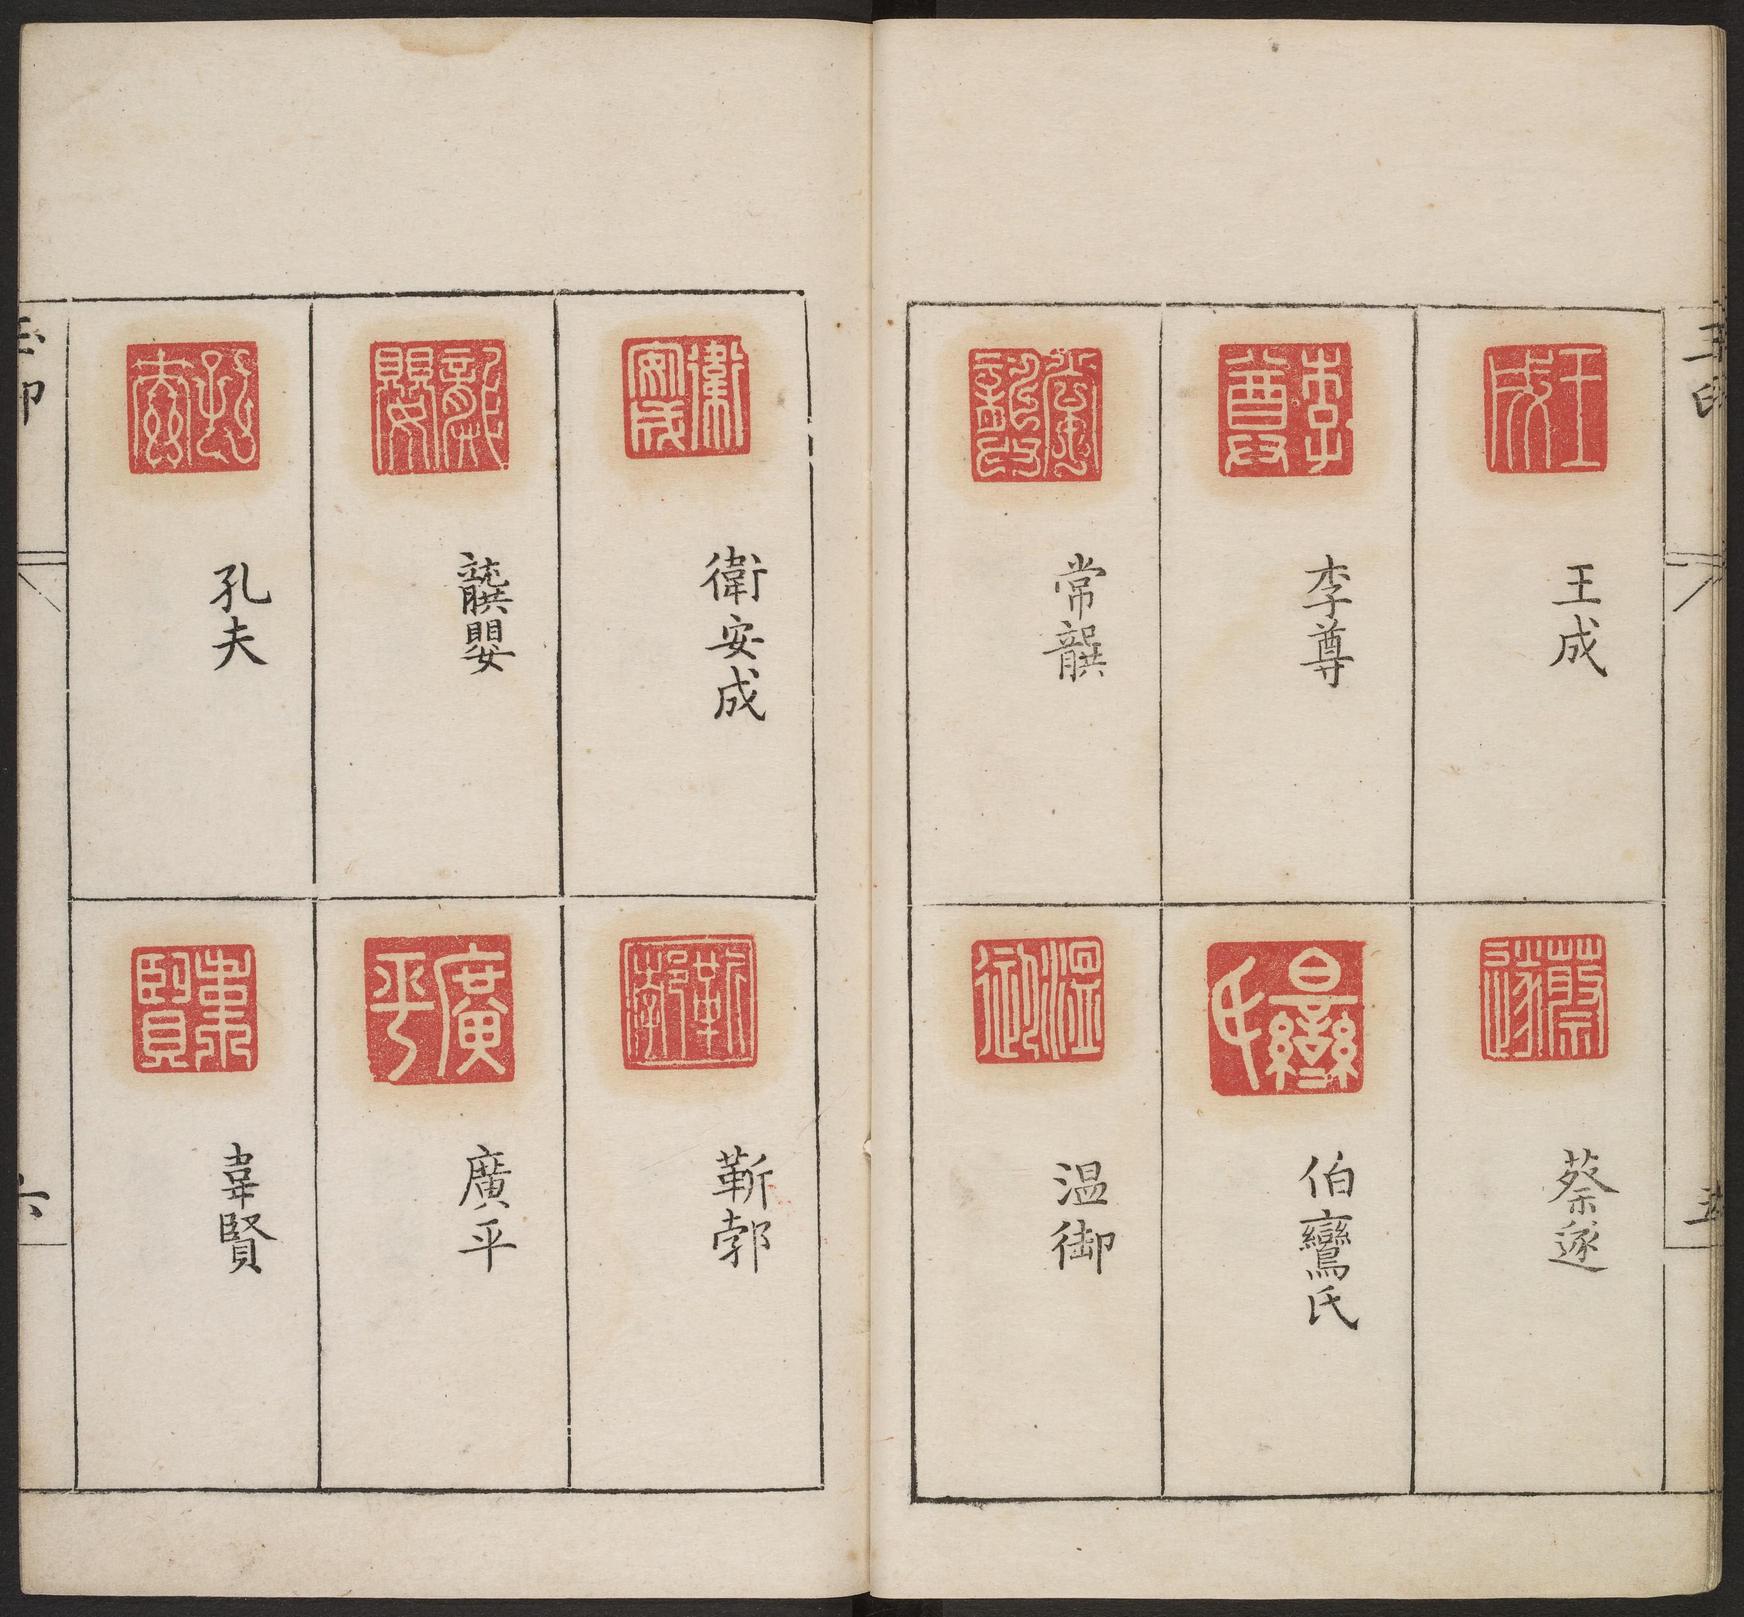 玉印
王成
李尊
常龏
蔡遂
伯鸞氏
温御
五
衛安成
龔嬰
孔夫
靳郭
廣平
韋賢
玉印
六